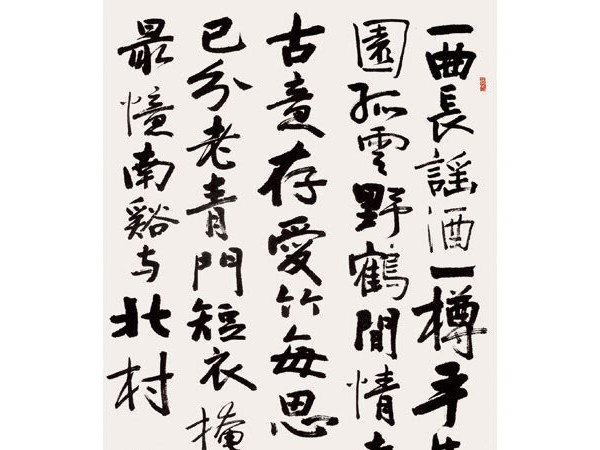 一曲長謠酒一樽平
園孤雲野鶴閒情
古意存愛竹每思
已分老青門短衣掩
最憶南谿与北村